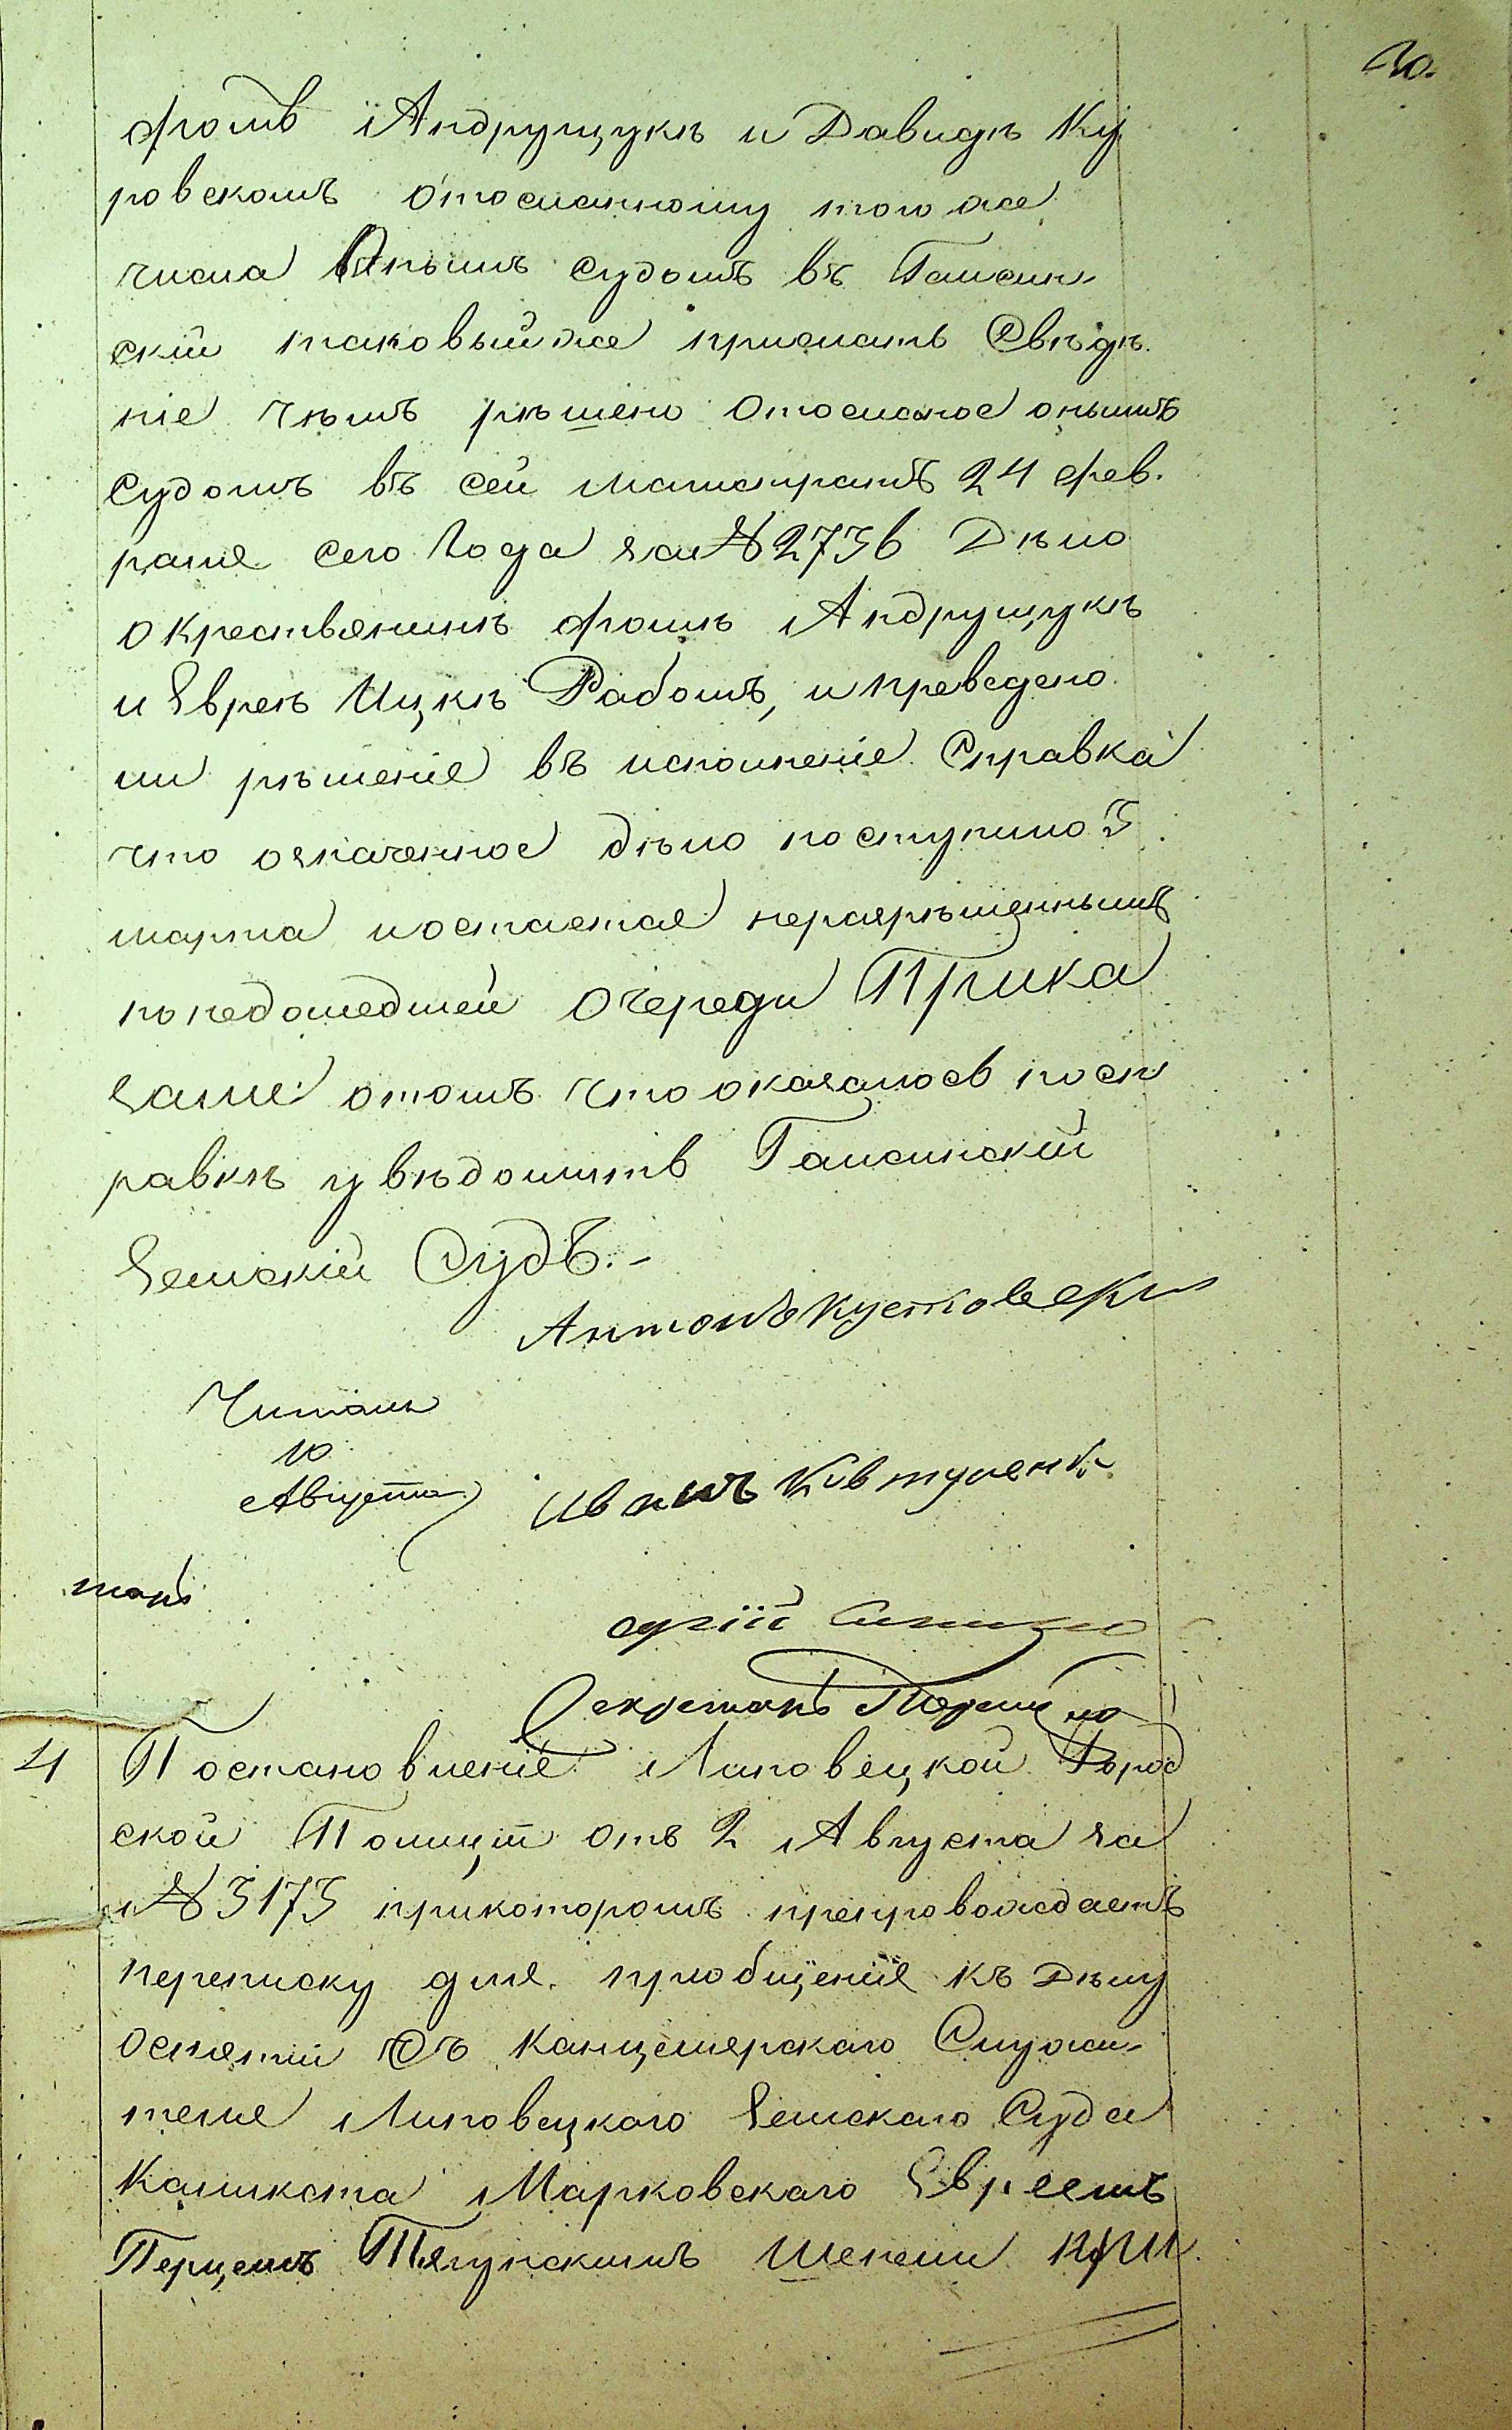 фомѣ Андрущукѣ и Давидѣ Ку
ровскомъ отосланному того же
числа онымъ Судомъ въ Гайсин-
скій таковый же прислать Свѣдѣ
ніе чѣмъ рѣшено отосланое онымъ
Судомъ въ сей магистратъ 24 фев.
раля сего года за № 2736 Дѣло
о крестьянинѣ фомѣ Андрущукѣ
и Евреѣ Ицкѣ Рабомъ, и преведено
ли рѣшеніе въ исполненіе. Справка
что означенное дѣло поступило 3
марта и остается неразрѣшеннымъ
по недошедшей очереди Прика
зали: отомъ что оказалось посп
равкѣ увѣдомить Гайсинскій
Земскій Судъ.-
Антонъ
Читалъ
10
Августа
Иванъ
Секретарь
4 Постановленіе Липовецкой Город
ской Полиціи отъ 2 Августа за
№ 3173 прикоторомъ препровождаетъ
переписку для приобщенія къ Дѣлу
оснятіи съ Канцелярскаго Служи-
теля Липовецкаго Земскаго Суда
Каликста Марковскаго Евреемъ
Перцемъ Тягунскимъ Шенели при